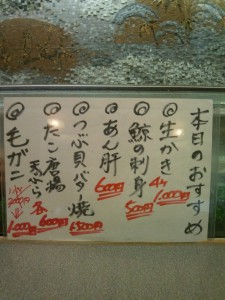 本日のおすすめ
◎生かき 4ヶ 1,000円
◎鯨の刺身 500円
◎あん肝 600円
◎つぶ貝バター焼
◎たこ唐揚 天ぷら 各600円
◎毛ガニ 1,000円